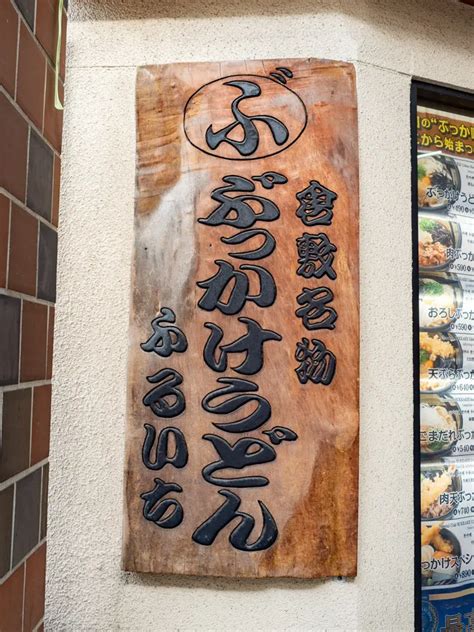 ぶ
倉敷名物
ぶっかけうどん
ふるいち
の"ぶっか
から始まっ
ぶっかけう
肉ぶっか
¥590
おろしぶっ
天ぷらぶっか
ごまだれぶっ
肉天ぶっ
¥740
っかけスペシ
¥890